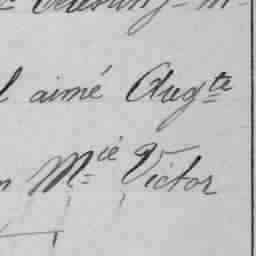 l aimé Aug^te
n M^ie Victor